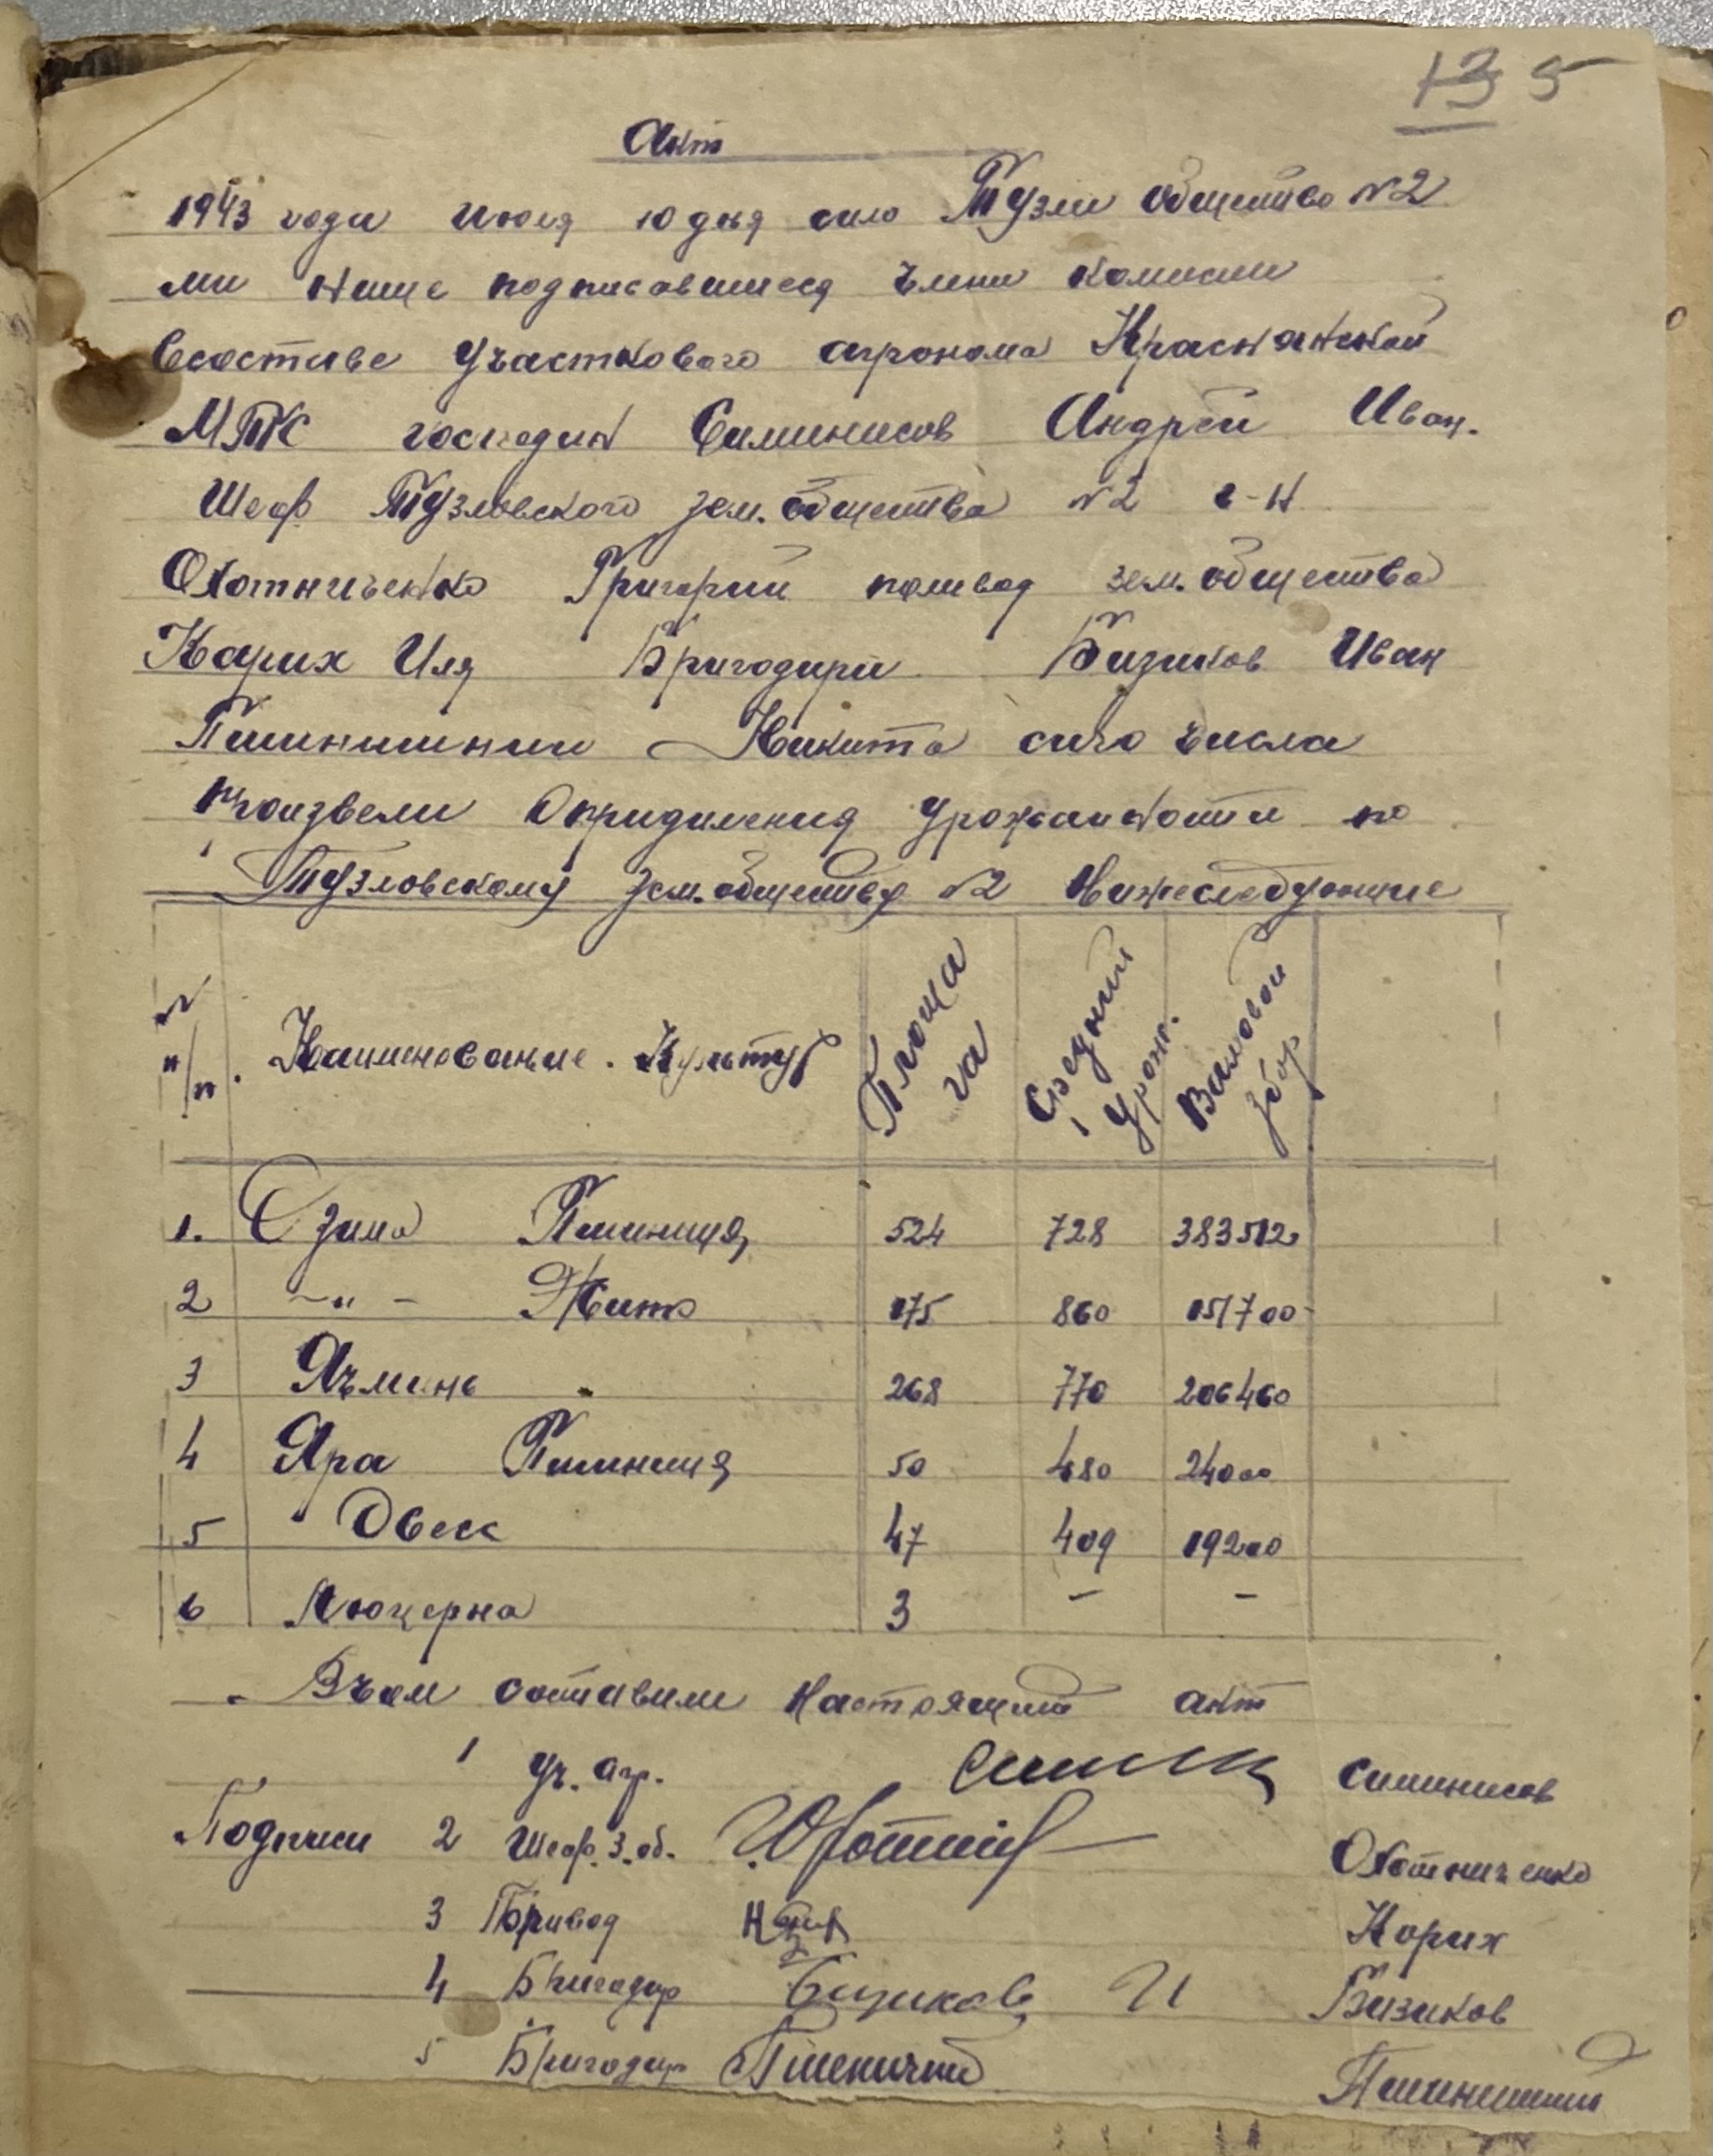 135
Акт
1943 года июля 10 дня село Тузли общество №2
ми нище подписавшиеся члени комисии
Всоставе участкового агронома Краснянской
МТС господин Симинисов Андрей Иван.
Шеф Тузловского зем. общества №2 г-н
Охотниченко Григорий поливод зем. общества
Карих Иля Бригодири Бизиков Иван
Пшинишний Никита сиго числа
произвели Опридиления урожайности по
Тузловскому зем. обществу №2 Нижеследующие
№ п/п. Наименование. Культур Площа га Средний Урож. Валовой збор
1. Озима Пшиниця 524 728 383512
2 -"- Жито 175 860 151700
3 Ячминь 268 770 206460
4 Яра Пшиниця 50 480 24000
5 Овес 47 409 19200
6 Люцерна 3 - -
Вчом составили настоящий акт
1 уч. агр. Симинисов
Подписи 2 Шеф. З. об. Охотниченко
3 Корих
4 Бригадир Бизиков И Бизиков
5 Бригодир Пшеничний Пшинишний